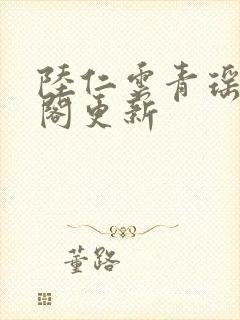 陸仁雲青瑶
閣更新
董路